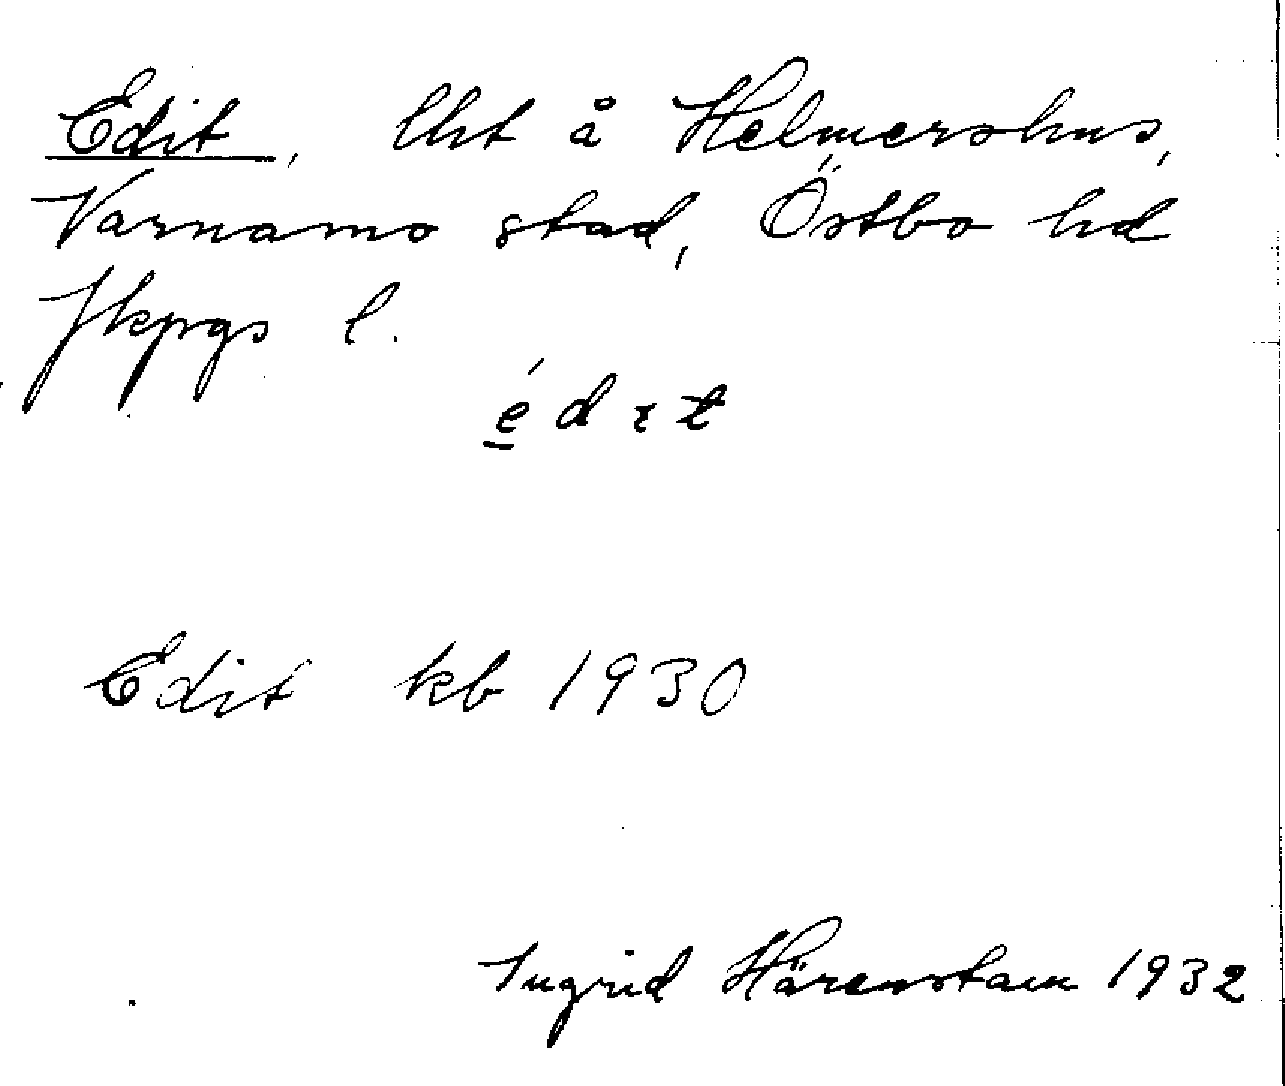 Edit, lht å Helmershus,
Värnamo stad, Östbo hd
Jkpgs l.
édıt
Edit kb 1930
Ingrid Härenstam 1932